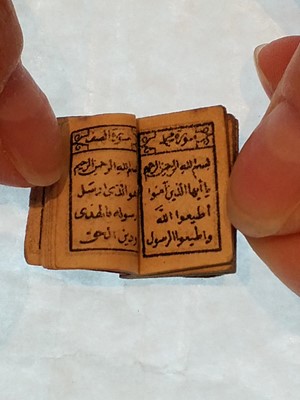 سورة محمد
بسم الله الرحمن الرحيم
يا أيها الذين آمنوا
أطيعوا الله
وأطيعوا الرسول
سورة الصف
بسم الله الرحمن الرحيم
هو الذي ارسل
رسوله بالهدى
ودين الحق